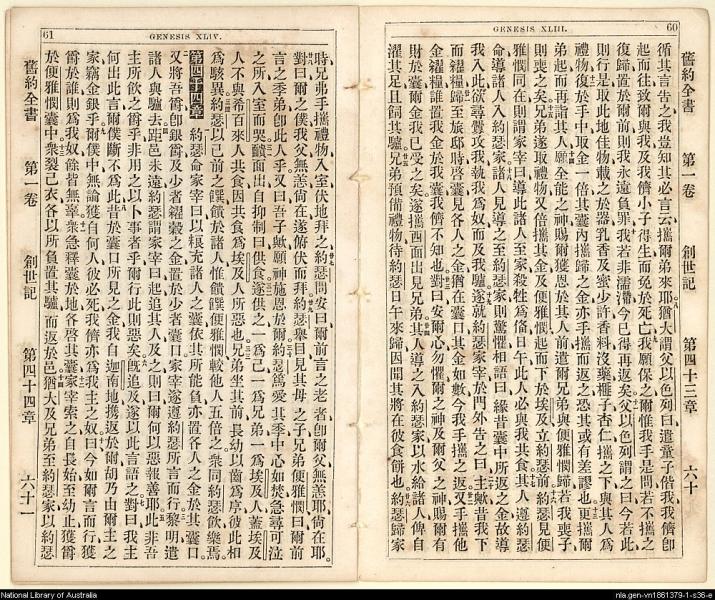 GENESIS XLIII.
60
舊約全書 第一卷 創世記 第四十三章 六十
循其言告之我豈知其必言云攜爾弟來耶猶大謂父以色列曰遣童子偕我我儕卽
起而往致爾與我及我儕小子得生而免於死亡我願保之爾惟我手是問若不攜之
復歸置於爾前則我永遠負罪我若非濡滯今巳得再返矣父以色列謂之曰今若此
則行是取此地佳物載之於器乳香及蜜少許香料沒藥榧子杏仁攜之下與其人爲
禮物復於手中取金一倍其囊內攜歸之金亦手攜而返之恐其或有差謬也更攜爾
弟起而再詣其人願全能之神賜爾獲恩於其人前遣爾兄弟與便雅憫歸若我喪子
則喪之矣兄弟遂取禮物又倍攜其金及便雅憫起而下於埃及立約瑟前約瑟見便
雅憫同在則謂家宰曰導此諸人至家殺牲爲備日午此人必與我共食其人遵約瑟
命導諸人入約瑟家諸人見導之至約瑟家則驚懼相語曰緣昔囊中所返之金故導
我入此欲尋釁攻我執我爲奴而及我驢遂就約瑟家宰於門外告之曰主歟昔我下
而糴糧歸至旅邸時啓囊見各人之金猶在囊口其金如數今我手攜之返又手攜他
金糴糧誰置我金於我囊我儕不知也對曰安心勿懼爾之神及爾父之神賜爾有
財於囊爾金我巳受之矣遂攜西面出見兄弟其人導之入約瑟家以水給諸人俾自
濯其足且飼其驢兄弟預備禮物待約瑟日午來歸因聞其將在彼食餅也約瑟歸家
61
GENESIS XLIV.
時兄弟手攜禮物入室伏地拜之約瑟問安曰爾前言之老者卽爾父無恙耶尙在耶
對曰爾之僕我父無恙尙在遂俯伏而拜約瑟舉目見其母之子兄弟便雅憫曰爾前
言之季弟卽此人乎又曰吾子歟願神施恩於爾約瑟篤愛其季中心如焚急尋可泣
之所入室而哭頮面出自抑制曰供食遂供之一爲己一爲兄弟一爲埃及人蓋埃及
人不與希百來人共食因共食爲埃及人所惡也兄弟坐其前長幼以齒爲序彼此相
爲駭異約瑟以己前之饌餽於諸人惟餽便雅憫較他人五倍之衆同約瑟飲樂焉
第四十四章 約瑟命家宰曰以糧充諸人之囊依其所能負亦置各人之金於其囊口
又將吾爵卽銀爵及少者糴穀之金置於少者囊口家宰遂遵約瑟所言而行黎明遣
諸人與驢去距邑未遠約瑟謂家宰曰起追其人及之則曰爾何以惡報善耶此非吾
主所飲之爵乎非用之以卜事者乎爾行此則惡矣旣追及遂以此言語之對曰我主
何出此言爾僕斷不爲此昔於囊口所見之金我自迦南地攜返於爾胡乃由爾主之
家竊金銀乎爾僕中無論獲自何人彼必死我儕亦爲我主之奴曰今如爾言而行獲
爵於誰則爲我奴餘皆無辜衆急釋囊於地各啓其囊家宰索之自長始至幼止獲爵
於便雅憫囊中衆裂己衣各以所負置其驢而返於邑猶大及兄弟至約瑟家以約瑟
舊約全書 第一卷 創世記 第四十四章 六十一
National Library of Australia
nla.gen-vn1861379-1-s36-e